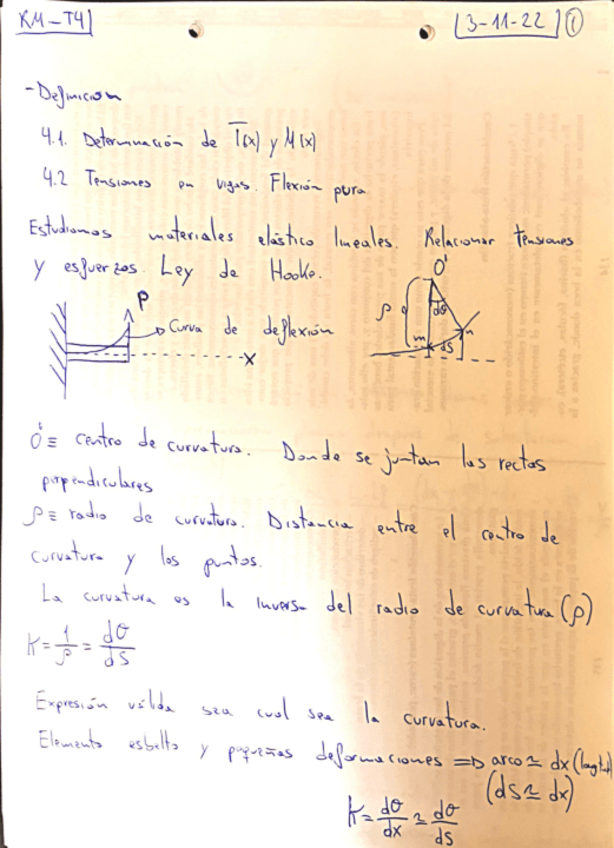 RM-T4
3-11-22 1
- Definicion
4.1. Determinación de T(x) y M(x)
4.2 Tensiones en vigas. Flexión pura
Estudiamos materiales elástico lineales. Relacionar tensiones
y esfuerzos. Ley de Hooke.
P
Curva de deflexión
x
O'
ρ
dθ
m
n
ds
O' ≡ centro de curvatura. Donde se juntan las rectas
perpendiculares
ρ ≡ radio de curvatura. Distancia entre el centro de
curvatura y los puntos.
La curvatura es la inversa del radio de curvatura (ρ)
K = 1/ρ = dθ/ds
Expresión válida sea cual sea la curvatura.
Elemento esbelto y pequeñas deformaciones ⇒ arco ≃ dx (longitud)
(ds ≃ dx)
K = dθ/dx ≃ dθ/ds